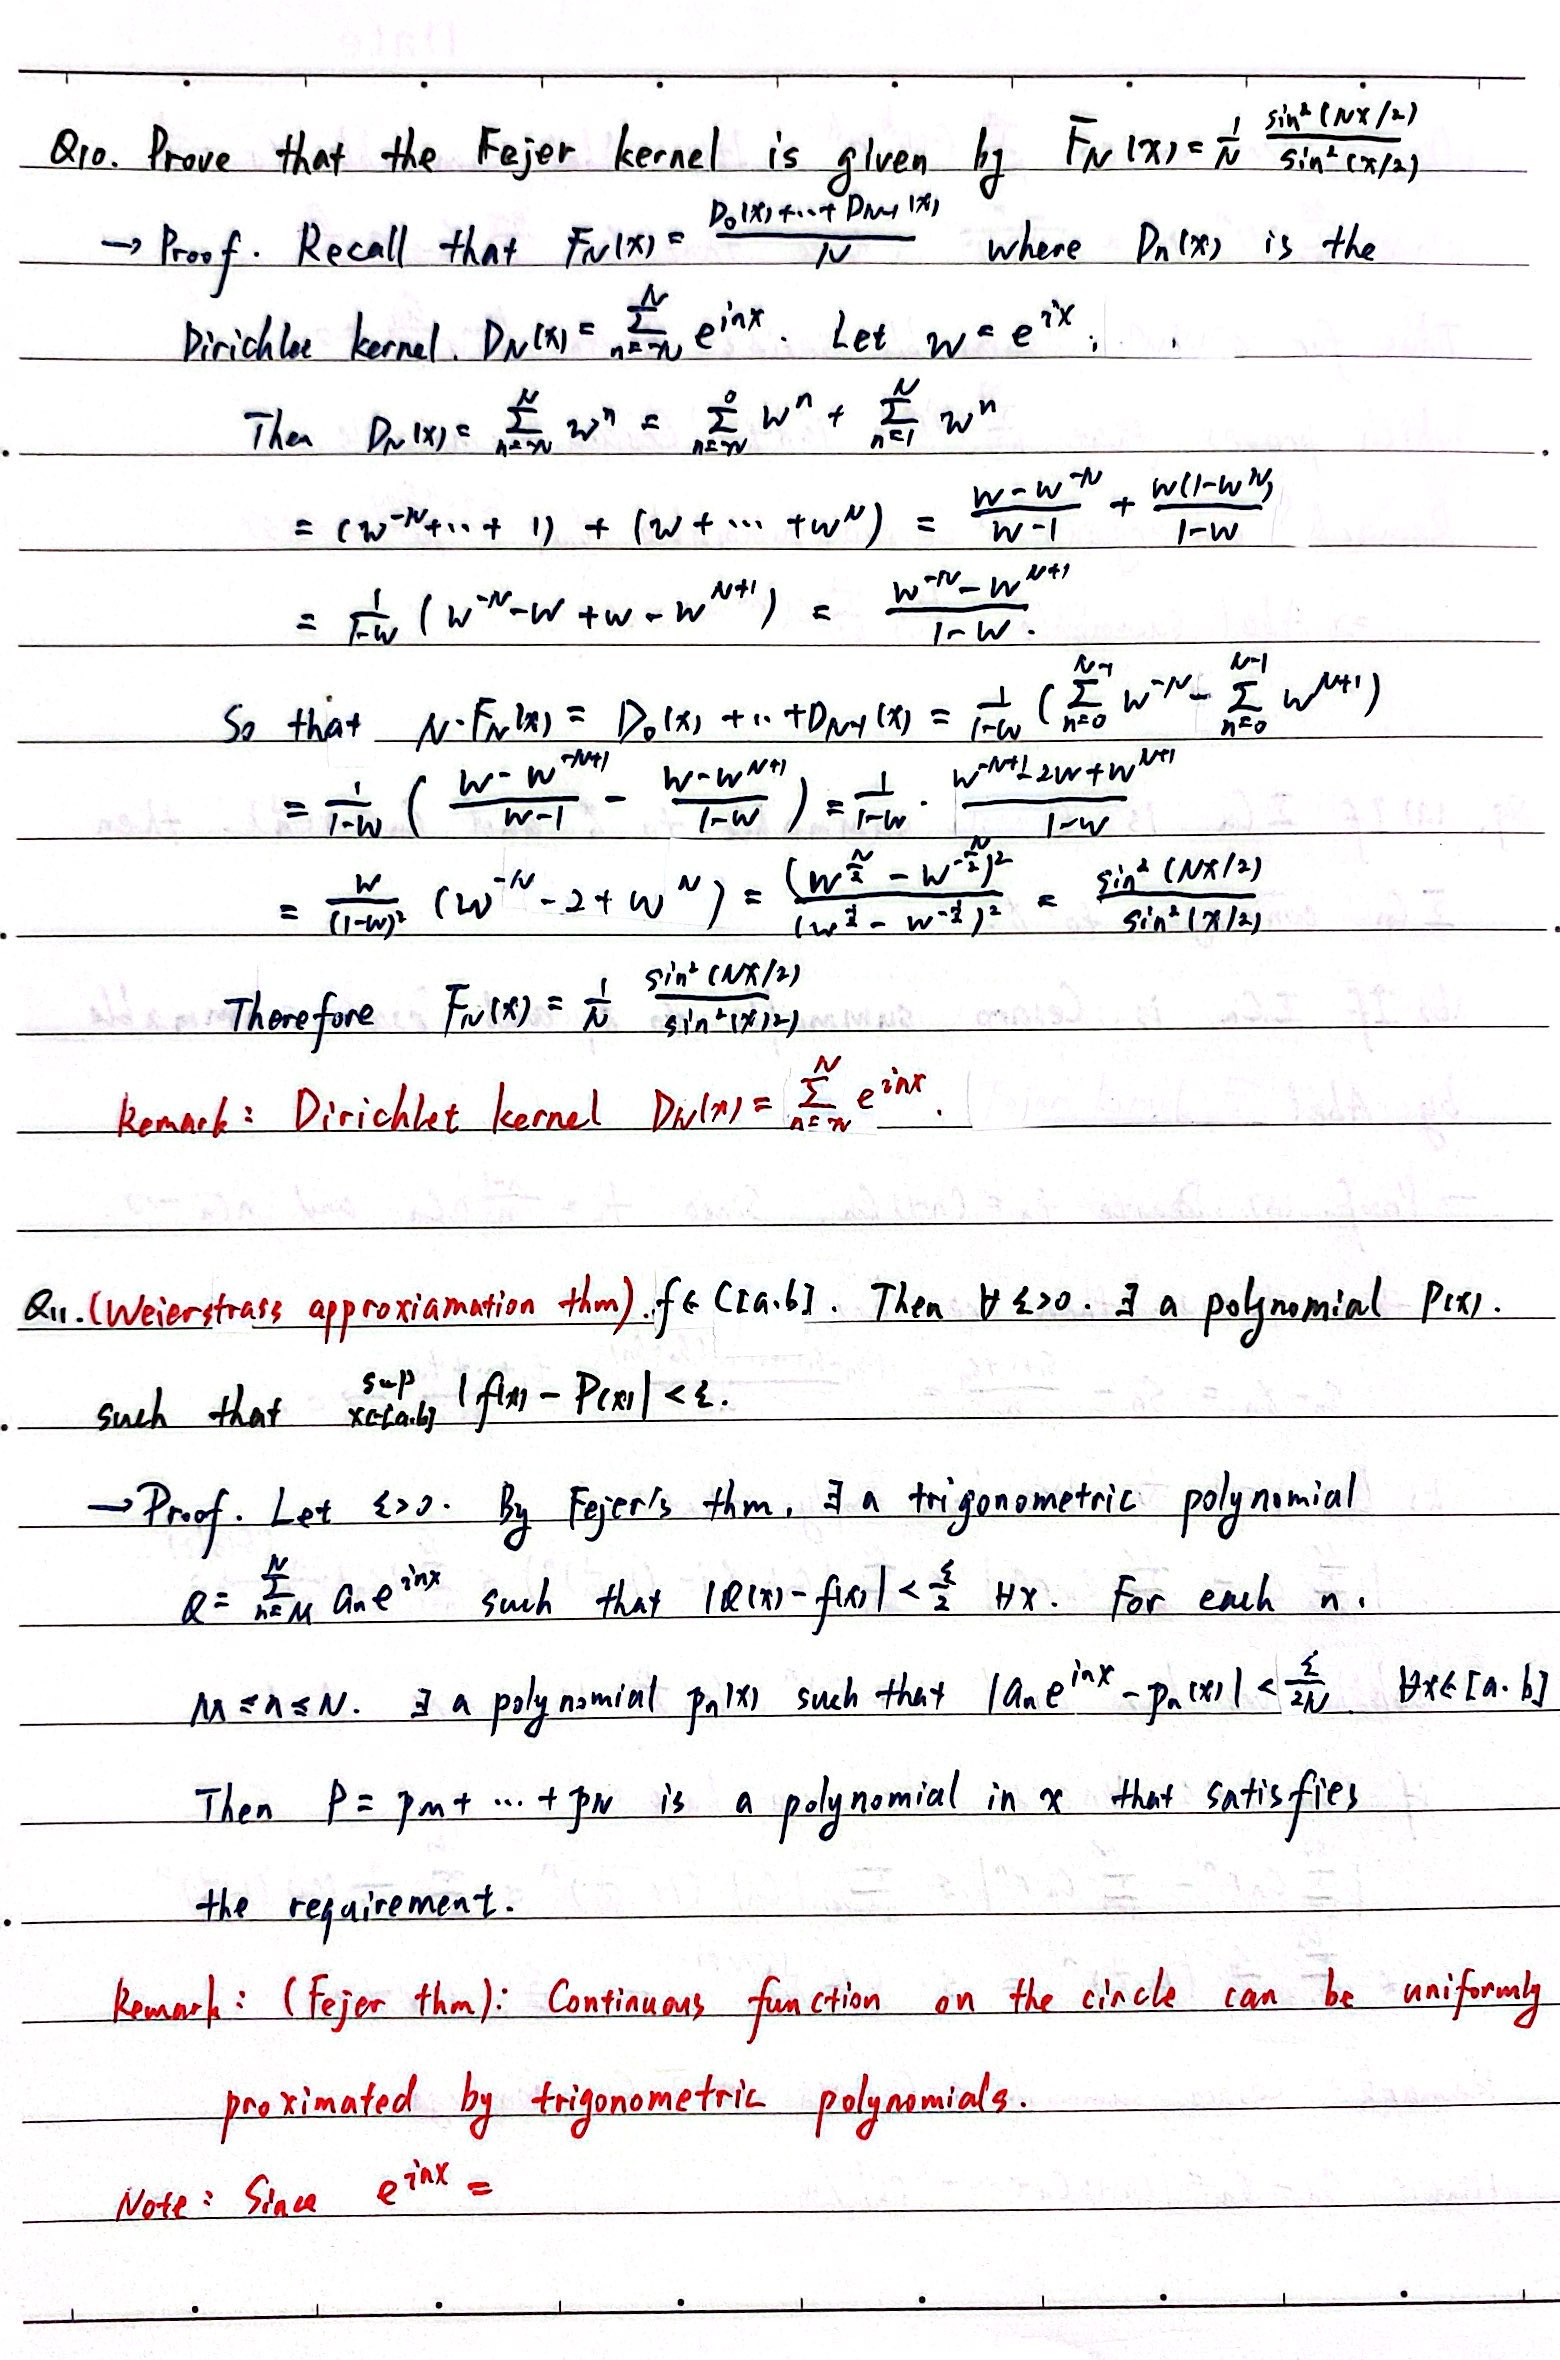 Q10. Prove that the Fejer kernel is given by F_N(x) = 1/N sin²(Nx/2)/sin²(x/2)
→ Proof. Recall that F_N(x) = (D_0(x)+...+D_{N-1}(x))/N where D_n(x) is the
Dirichlet kernel. D_N(x) = Σ_{n=-N}^{N} e^{inx}. Let w = e^{ix}.
Then D_N(x) = Σ_{n=-N}^{N} w^n = Σ_{n=-N}^{0} w^n + Σ_{n=1}^{N} w^n
= (w^{-N}+...+1) + (w+...+w^N) = (w-w^{-N})/(w-1) + w(1-w^N)/(1-w)
= 1/(1-w) (w^{-N}-w+w-w^{N+1}) = (w^{-N}-w^{N+1})/(1-w).
So that N·F_N(x) = D_0(x)+..+D_{N-1}(x) = 1/(1-w) (Σ_{n=0}^{N-1} w^{-N} - Σ_{n=0}^{N-1} w^{N+1})
= 1/(1-w) ((w-w^{-N+1})/(w-1) - (w-w^{N+1})/(1-w)) = 1/(1-w) · (w^{-N+1}-2w+w^{N+1})/(1-w)
= w/(1-w)² (w^{-N}-2+w^N) = (w^{N/2}-w^{-N/2})²/(w^{1/2}-w^{-1/2})² = sin²(Nx/2)/sin²(x/2)
Therefore F_N(x) = 1/N sin²(Nx/2)/sin²(x/2)
Remark: Dirichlet kernel D_N(x) = Σ_{n=-N}^{N} e^{inx}.
Q11. (Weierstrass approxiamation thm). f∈C[a.b]. Then ∀ε>0. ∃ a polynomial P(x).
such that sup_{x∈[a.b]} |f(x)-P(x)|<ε.
→ Proof. Let ε>0. By Fejer's thm, ∃ a trigonometric polynomial
Q = Σ_{n=M}^{N} a_n e^{inx} such that |Q(x)-f(x)|<ε/2 ∀x. For each n,
M≤n≤N. ∃ a polynomial p_n(x) such that |a_n e^{inx}-p_n(x)|<ε/2N ∀x∈[a.b]
Then P = p_M+...+p_N is a polynomial in x that satisfies
the requirement.
Remark: (Fejer thm): Continuous function on the circle can be uniformly
proximated by trigonometric polynomials.
Note: Since e^{inx} =